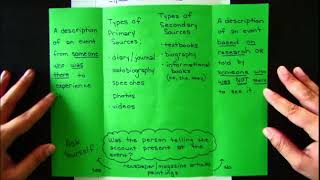 A description
of an event
from someone
who was
there to
experience
Ask
Yourself:
Types of
Primary
Sources:
· diary/journal
· autobiography
· speeches
· photos
· videos
Types of
Secondary
Sources:
· textbooks
· biography
· informational
books
(he, she, they)
A description
of an event
based on
research OR
told by
someone who
was NOT there
to see it.
Was the person telling the
account present at the
event?
Yes
newspaper/magazine articles
paintings
No